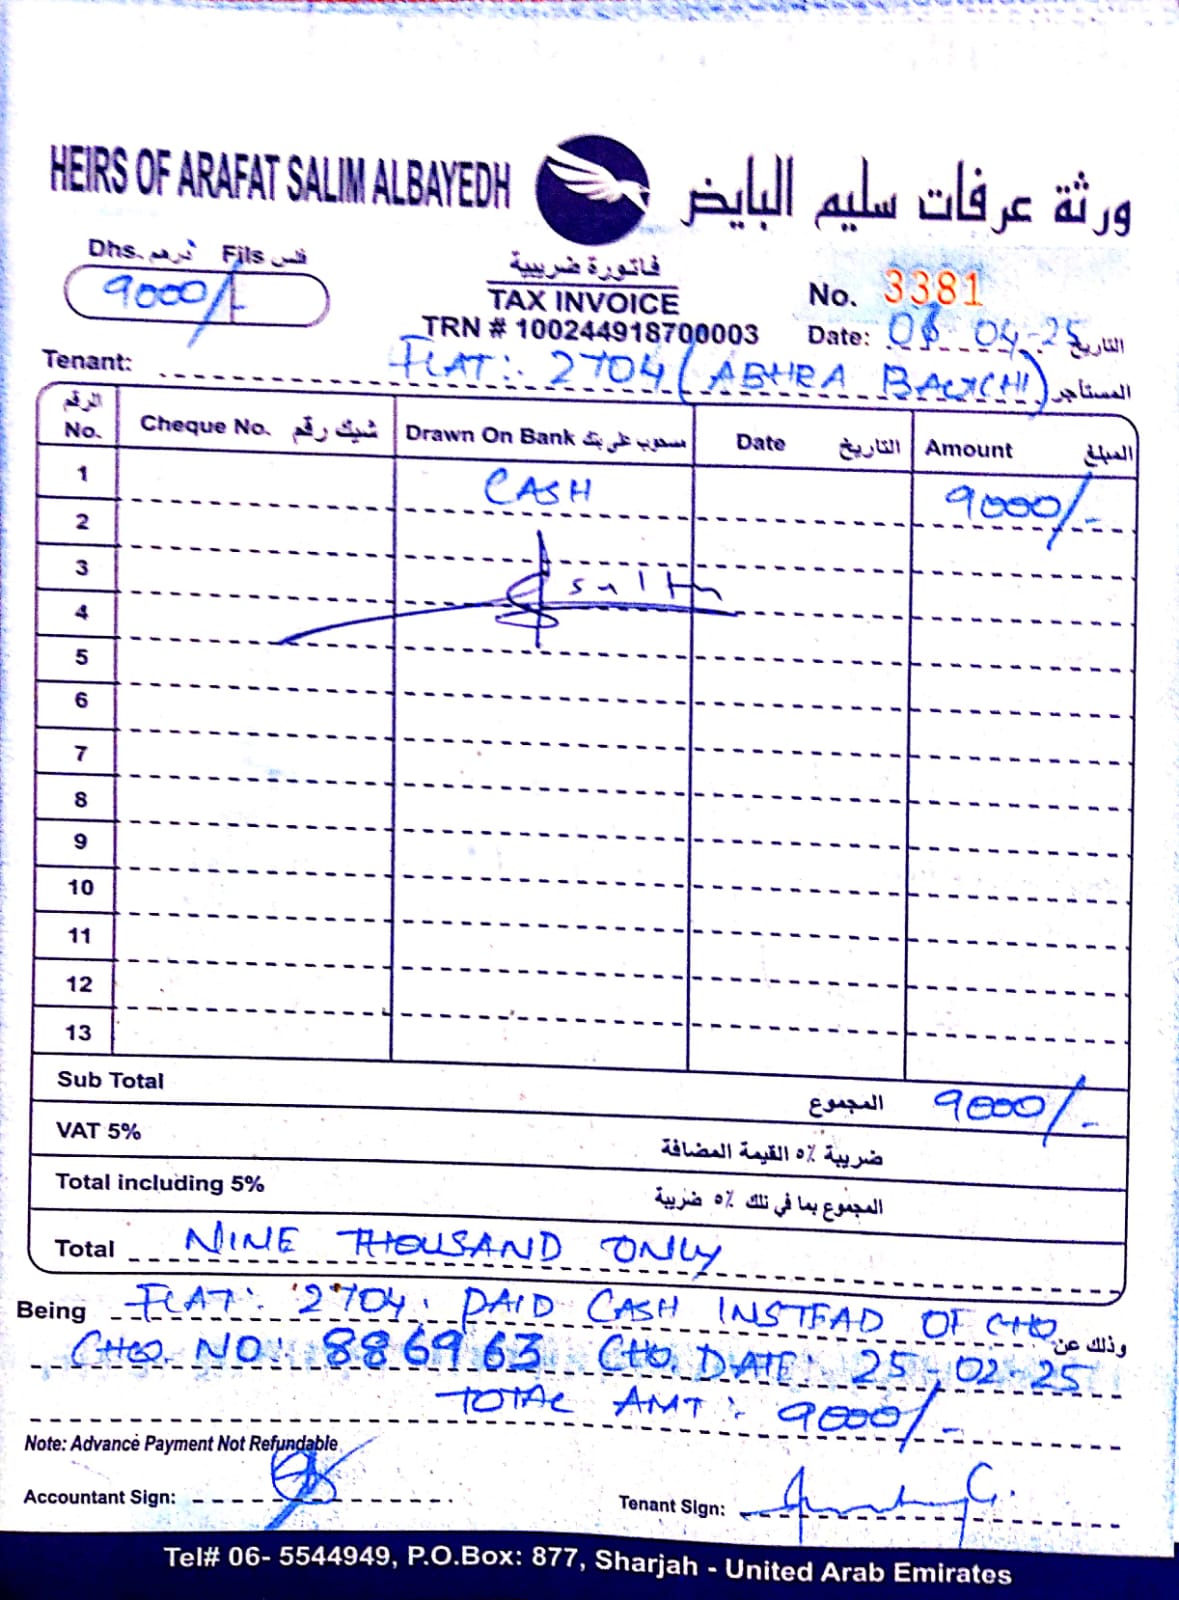 HEIRS OF ARAFAT SALIM ALBAYEDH ورثة عرفات سليم البايض
Dhs. درهم Fils فلس
9000/-
فاتورة ضريبية
TAX INVOICE
TRN # 100244918700003
No. 3381
Date: 04-25 التاريخ
Tenant: FLAT: 2704 (ABHRA BAGCHI) المستأجر
الرقم No. Cheque No. شيك رقم Drawn On Bank مسحوب على بنك Date التاريخ Amount المبلغ
1 CASH 9000/-
2
3
4
5
6
7
8
9
10
11
12
13
Sub Total المجموع 9000/-
VAT 5% ضريبة ٥٪ القيمة المضافة
Total including 5% المجموع بما في ذلك ٥٪ ضريبة
Total NINE THOUSAND ONLY
Being FLAT: 2704. PAID CASH INSTEAD OF CHQ وذلك عن
CHQ. NO: 886963 CHQ. DATE: 25-02-25
TOTAL AMT: 9000/-
Note: Advance Payment Not Refundable
Accountant Sign:
Tenant Sign:
Tel# 06- 5544949, P.O.Box: 877, Sharjah - United Arab Emirates